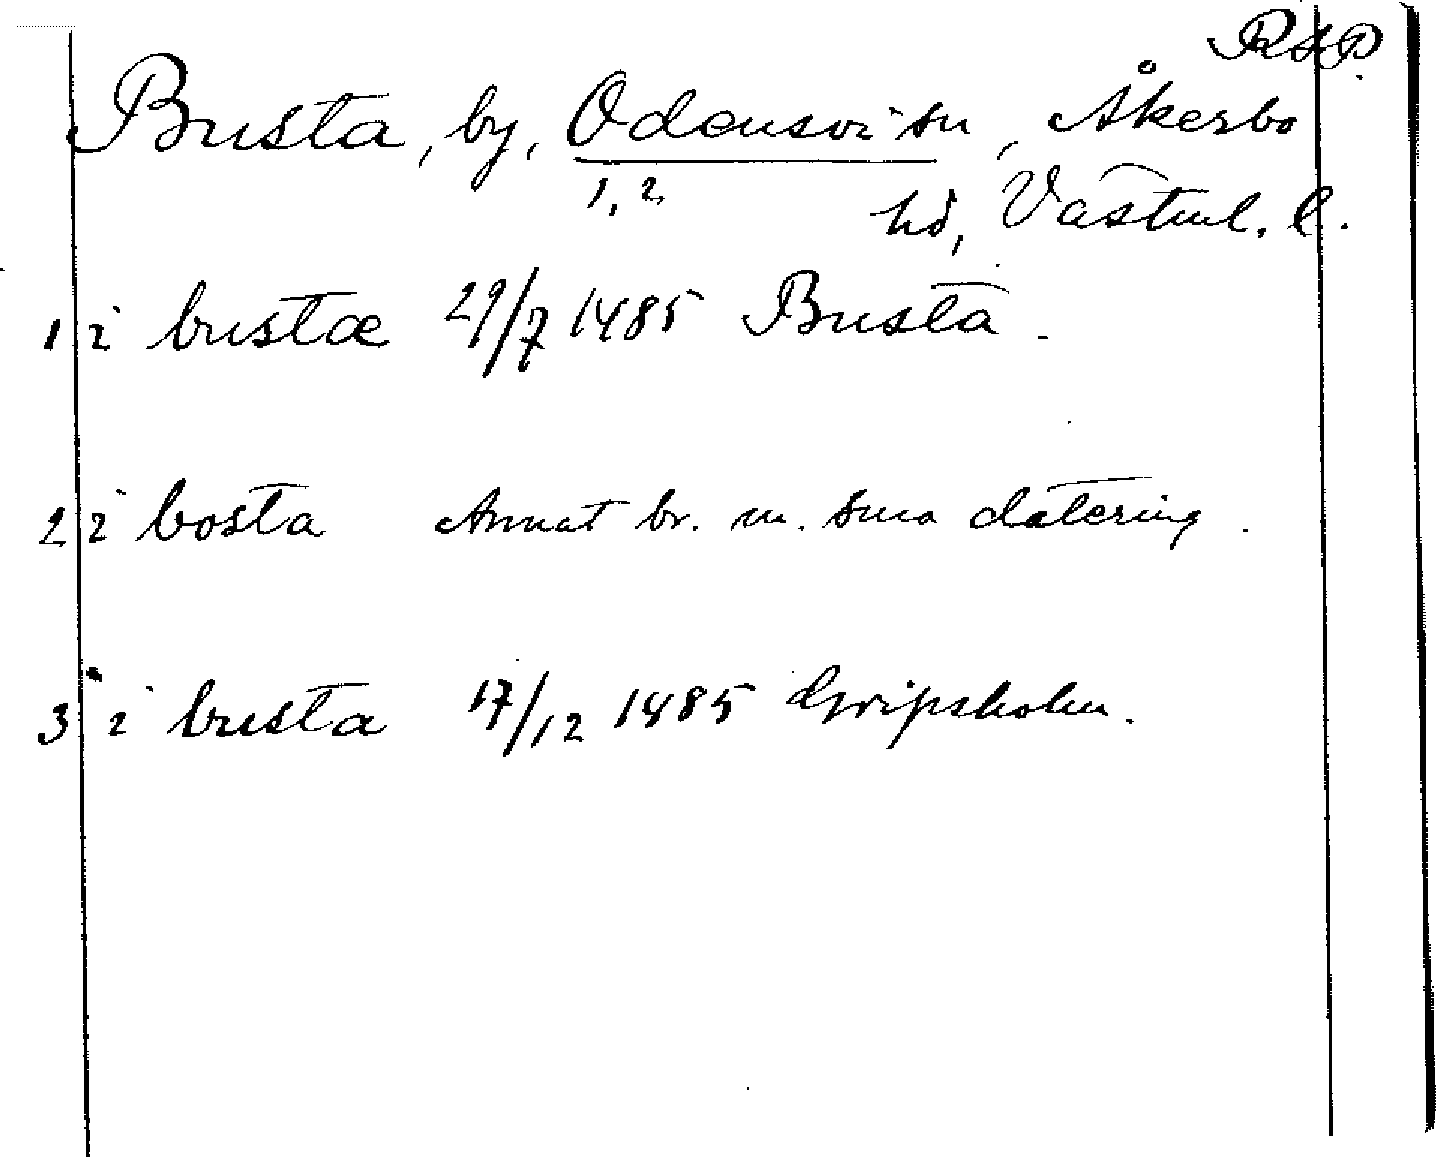 RAP.
Busta, by, Odensvi sn, Åkerbo
1, 2
hd, Västml. l.
1 i bustæ 29/7 1485 Busta.
2 i bosta Annat br. m. sma datering.
3 i busta 17/12 1485 Gripsholm.